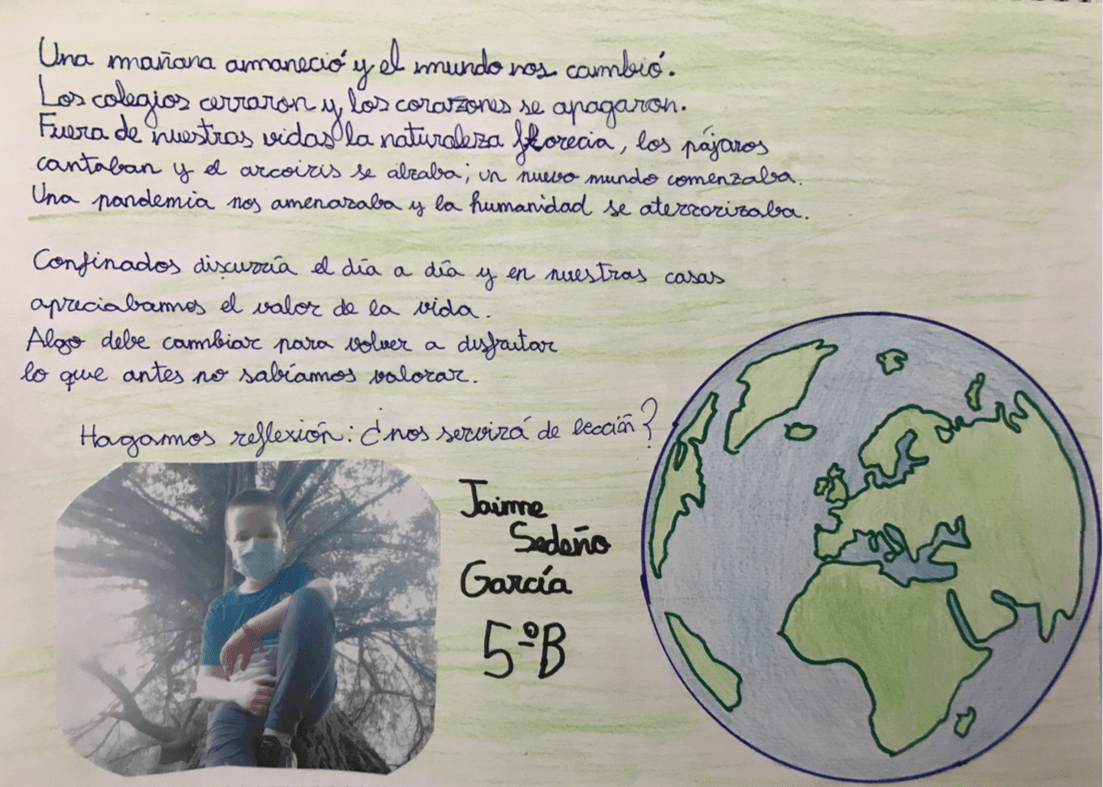 Una mañana amaneció y el mundo nos cambió.
Los colegios cerraron y los corazones se apagaron.
Fuera de nuestras vidas la naturaleza florecia, los pájaros
cantaban y el arcoiris se alzaba; un nuevo mundo comenzaba.
Una pandemia nos amenazaba y la humanidad se aterrorizaba.
Confinados discurría el día a día y en nuestras casas
apreciabamos el valor de la vida.
Algo debe cambiar para volver a disfrutar
lo que antes no sabíamos valorar.
Hagamos reflexión: ¿nos servirá de lección?
Jaime
Sedeño
García
5ºB